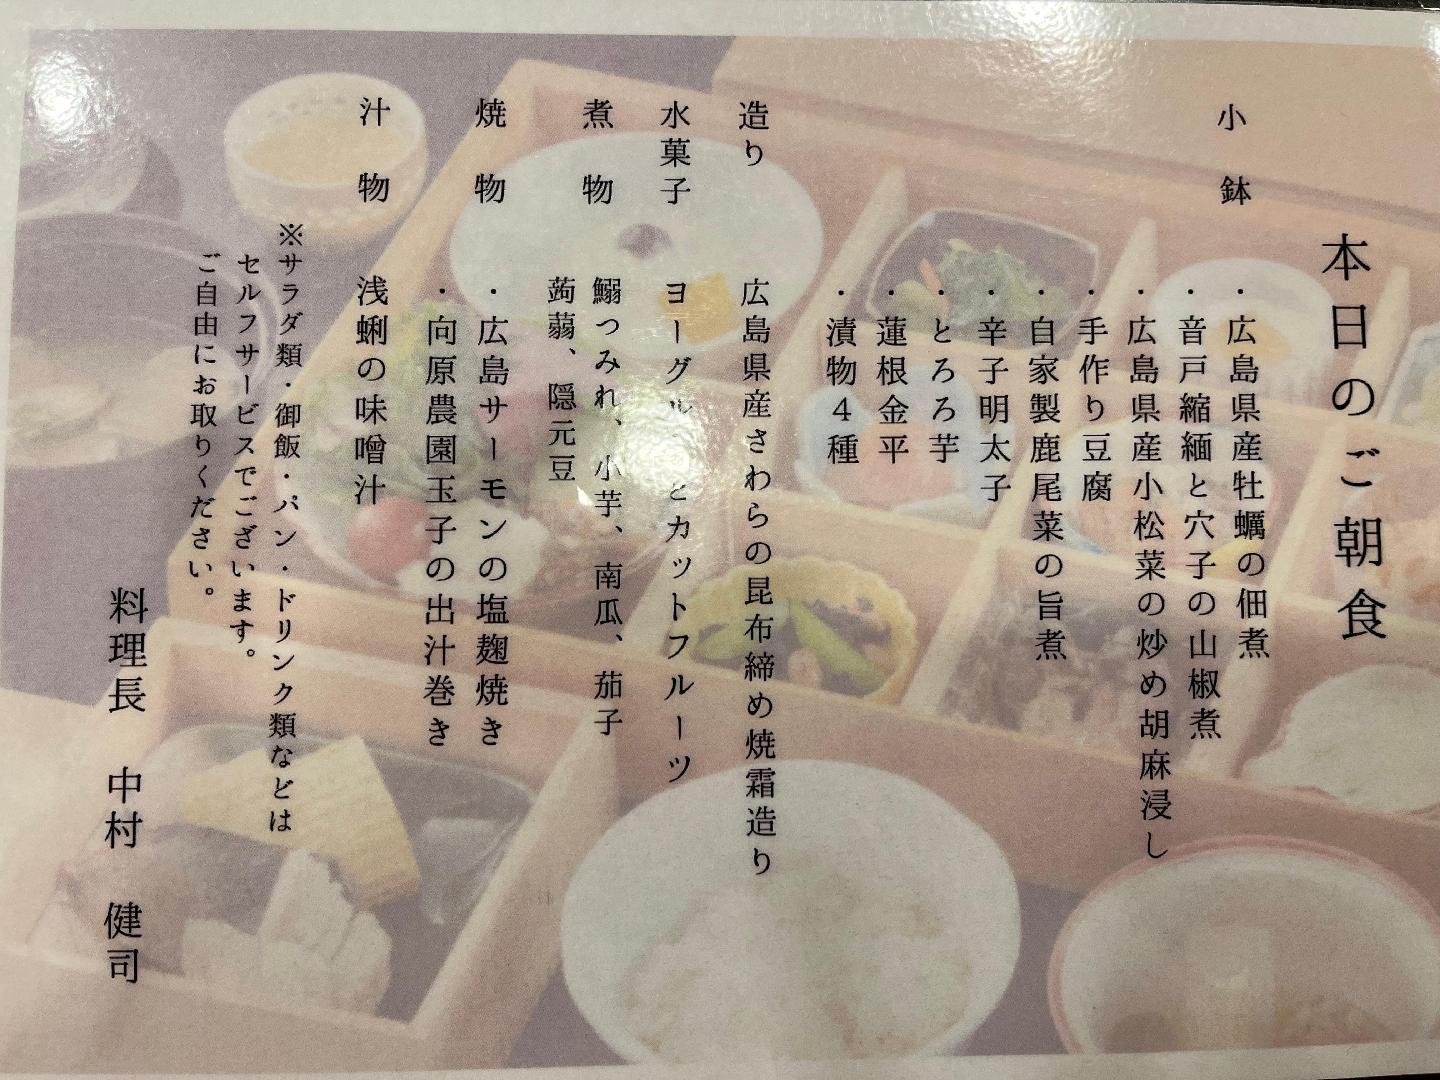 本日のご朝食
小鉢
・広島県産牡蠣の佃煮
・音戸縮緬と穴子の山椒煮
・広島県産小松菜の炒め胡麻浸し
・手作り豆腐
・自家製鹿尾菜の旨煮
・辛子明太子
・とろろ芋
・蓮根金平
・漬物４種
造り 広島県産さわらの昆布締め焼霜造り
水菓子 ヨーグルトとカットフルーツ
煮物 鰯つみれ、小芋、南瓜、茄子
蒟蒻、隠元豆
焼物 ・広島サーモンの塩麹焼き
・向原農園玉子の出汁巻き
汁物 浅蜊の味噌汁
※サラダ類・御飯・パン・ドリンク類などは
セルフサービスでございます。
ご自由にお取りください。
料理長 中村 健司